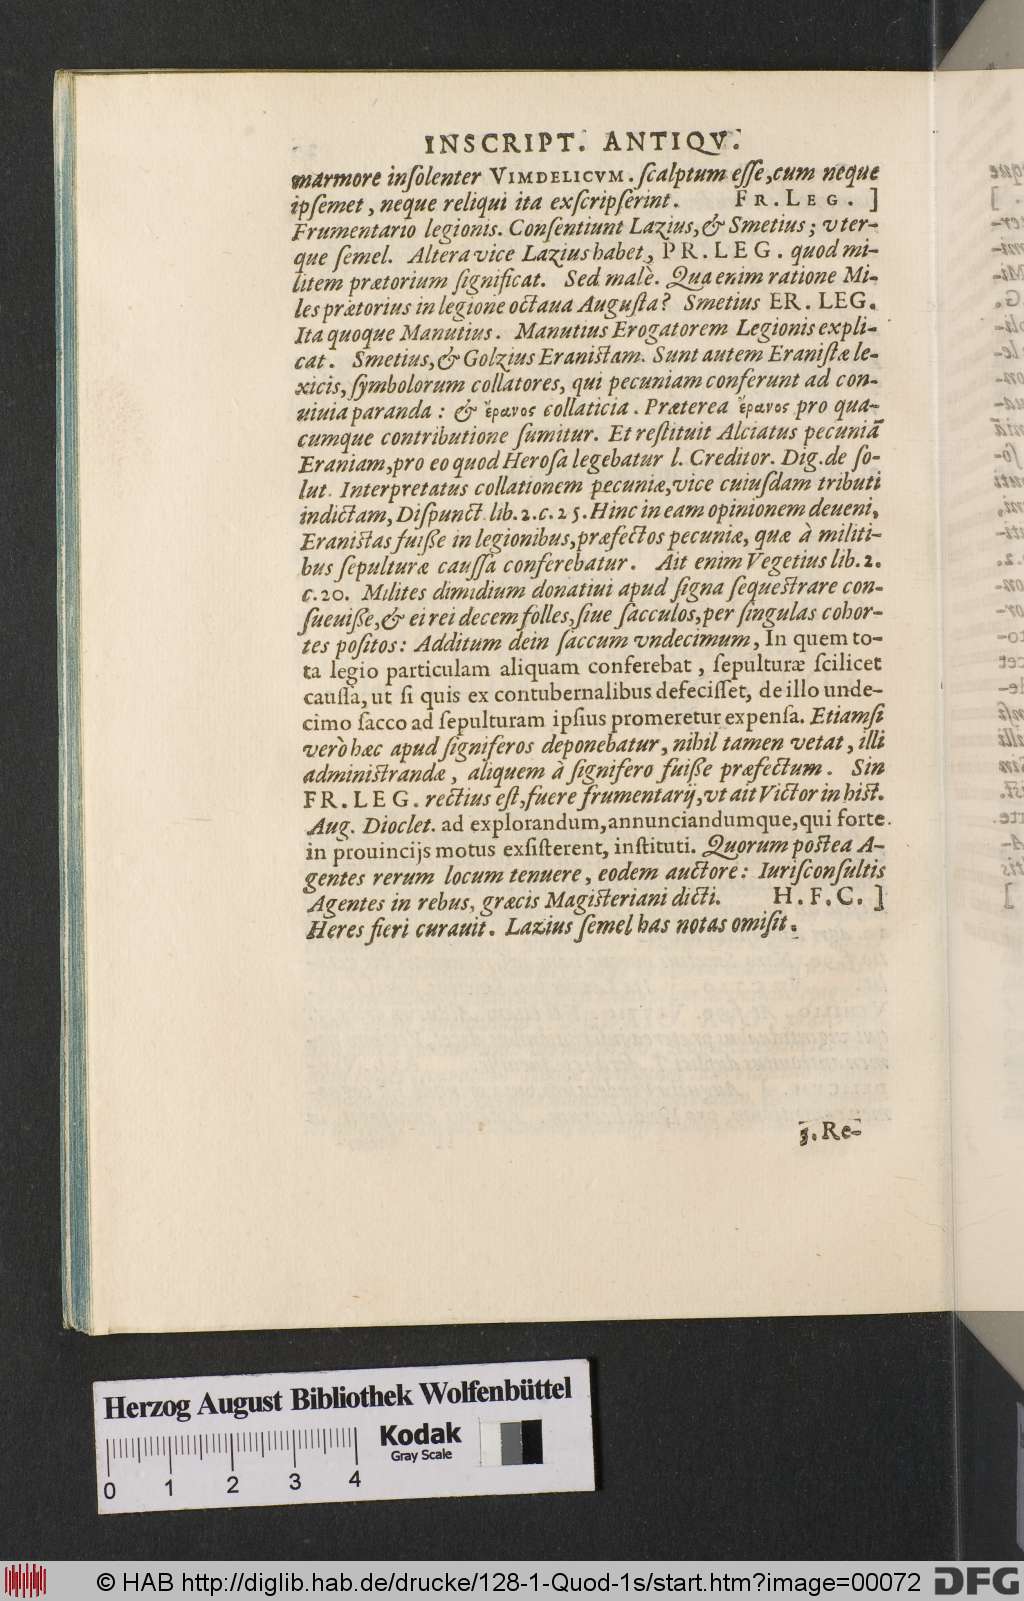 INSCRIPT. ANTIQV.
marmore insolenter VIMDELICVM. scalptum esse, cum neque
ipsemet, neque reliqui ita exscripserint. FR. LEG. ]
Frumentario legionis. Consentiunt Lazius, & Smetius; vter-
que semel. Altera vice Lazius habet, PR. LEG. quod mi-
litem prætorium significat. Sed malè. Qua enim ratione Mi-
les prætorius in legione octaua Augusta? Smetius ER. LEG.
Ita quoque Manutius. Manutius Erogatorem Legionis expli-
cat. Smetius, & Golzius Eranistam. Sunt autem Eranistæ le-
xicis, symbolorum collatores, qui pecuniam conferunt ad con-
uiuia paranda: & ἔρανος collaticia. Præterea ἔρανος pro qua-
cumque contributione sumitur. Et restituit Alciatus pecuniã
Eraniam, pro eo quod Herosa legebatur l. Creditor. Dig. de so-
lut. Interpretatus collationem pecuniæ, vice cuiusdam tributi
indictam, Dispunct. lib. 2. c. 25. Hinc in eam opinionem deueni,
Eranistas fuisse in legionibus, præfectos pecuniæ, quæ à militi-
bus sepulturæ caussa conferebatur. Ait enim Vegetius lib. 2.
c. 20. Milites dimidium donatiui apud signa sequestrare con-
sueuisse, & ei rei decem folles, siue sacculos, per singulas cohor-
tes positos: Additum dein saccum vndecimum, In quem to-
ta legio particulam aliquam conferebat, sepulturæ scilicet
caussa, ut si quis ex contubernalibus defecisset, de illo unde-
cimo sacco ad sepulturam ipsius promeretur expensa. Etiamsi
verò hæc apud signiferos deponebatur, nihil tamen vetat, illi
administrandæ, aliquem à signifero fuisse præfectum. Sin
FR. LEG. rectius est, fuere frumentarij, vt ait Victor in hist.
Aug. Dioclet. ad explorandum, annunciandumque, qui forte
in prouincijs motus exsisterent, instituti. Quorum postea A-
gentes rerum locum tenuere, eodem auctore: Iurisconsultis
Agentes in rebus, græcis Magisteriani dicti. H. F. C. ]
Heres fieri curauit. Lazius semel has notas omisit.
3. Re-
Herzog August Bibliothek Wolfenbüttel
Kodak
Gray Scale
0 1 2 3 4
© HAB http://diglib.hab.de/drucke/128-1-Quod-1s/start.htm?image=00072
DFG